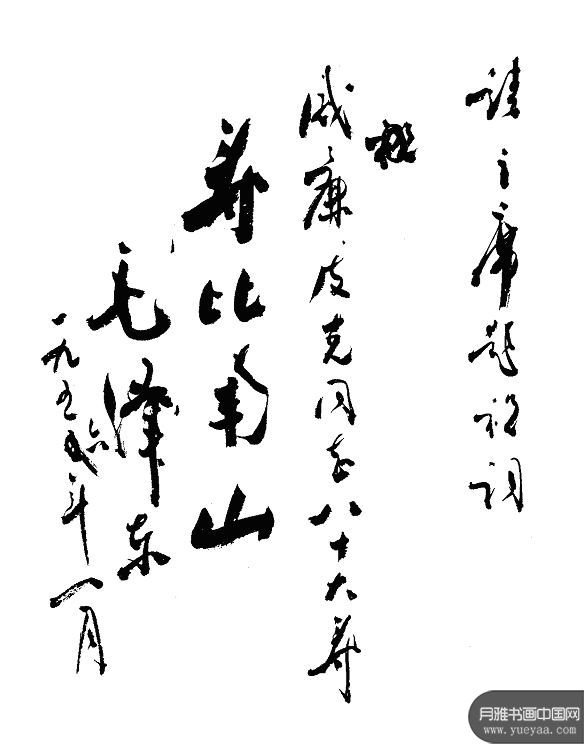 请主席题祝词
祝
威廉·皮克同志八十大寿
寿比南山
毛泽东
一九五六年一月
月雅书画中国网
www.yueyaa.com